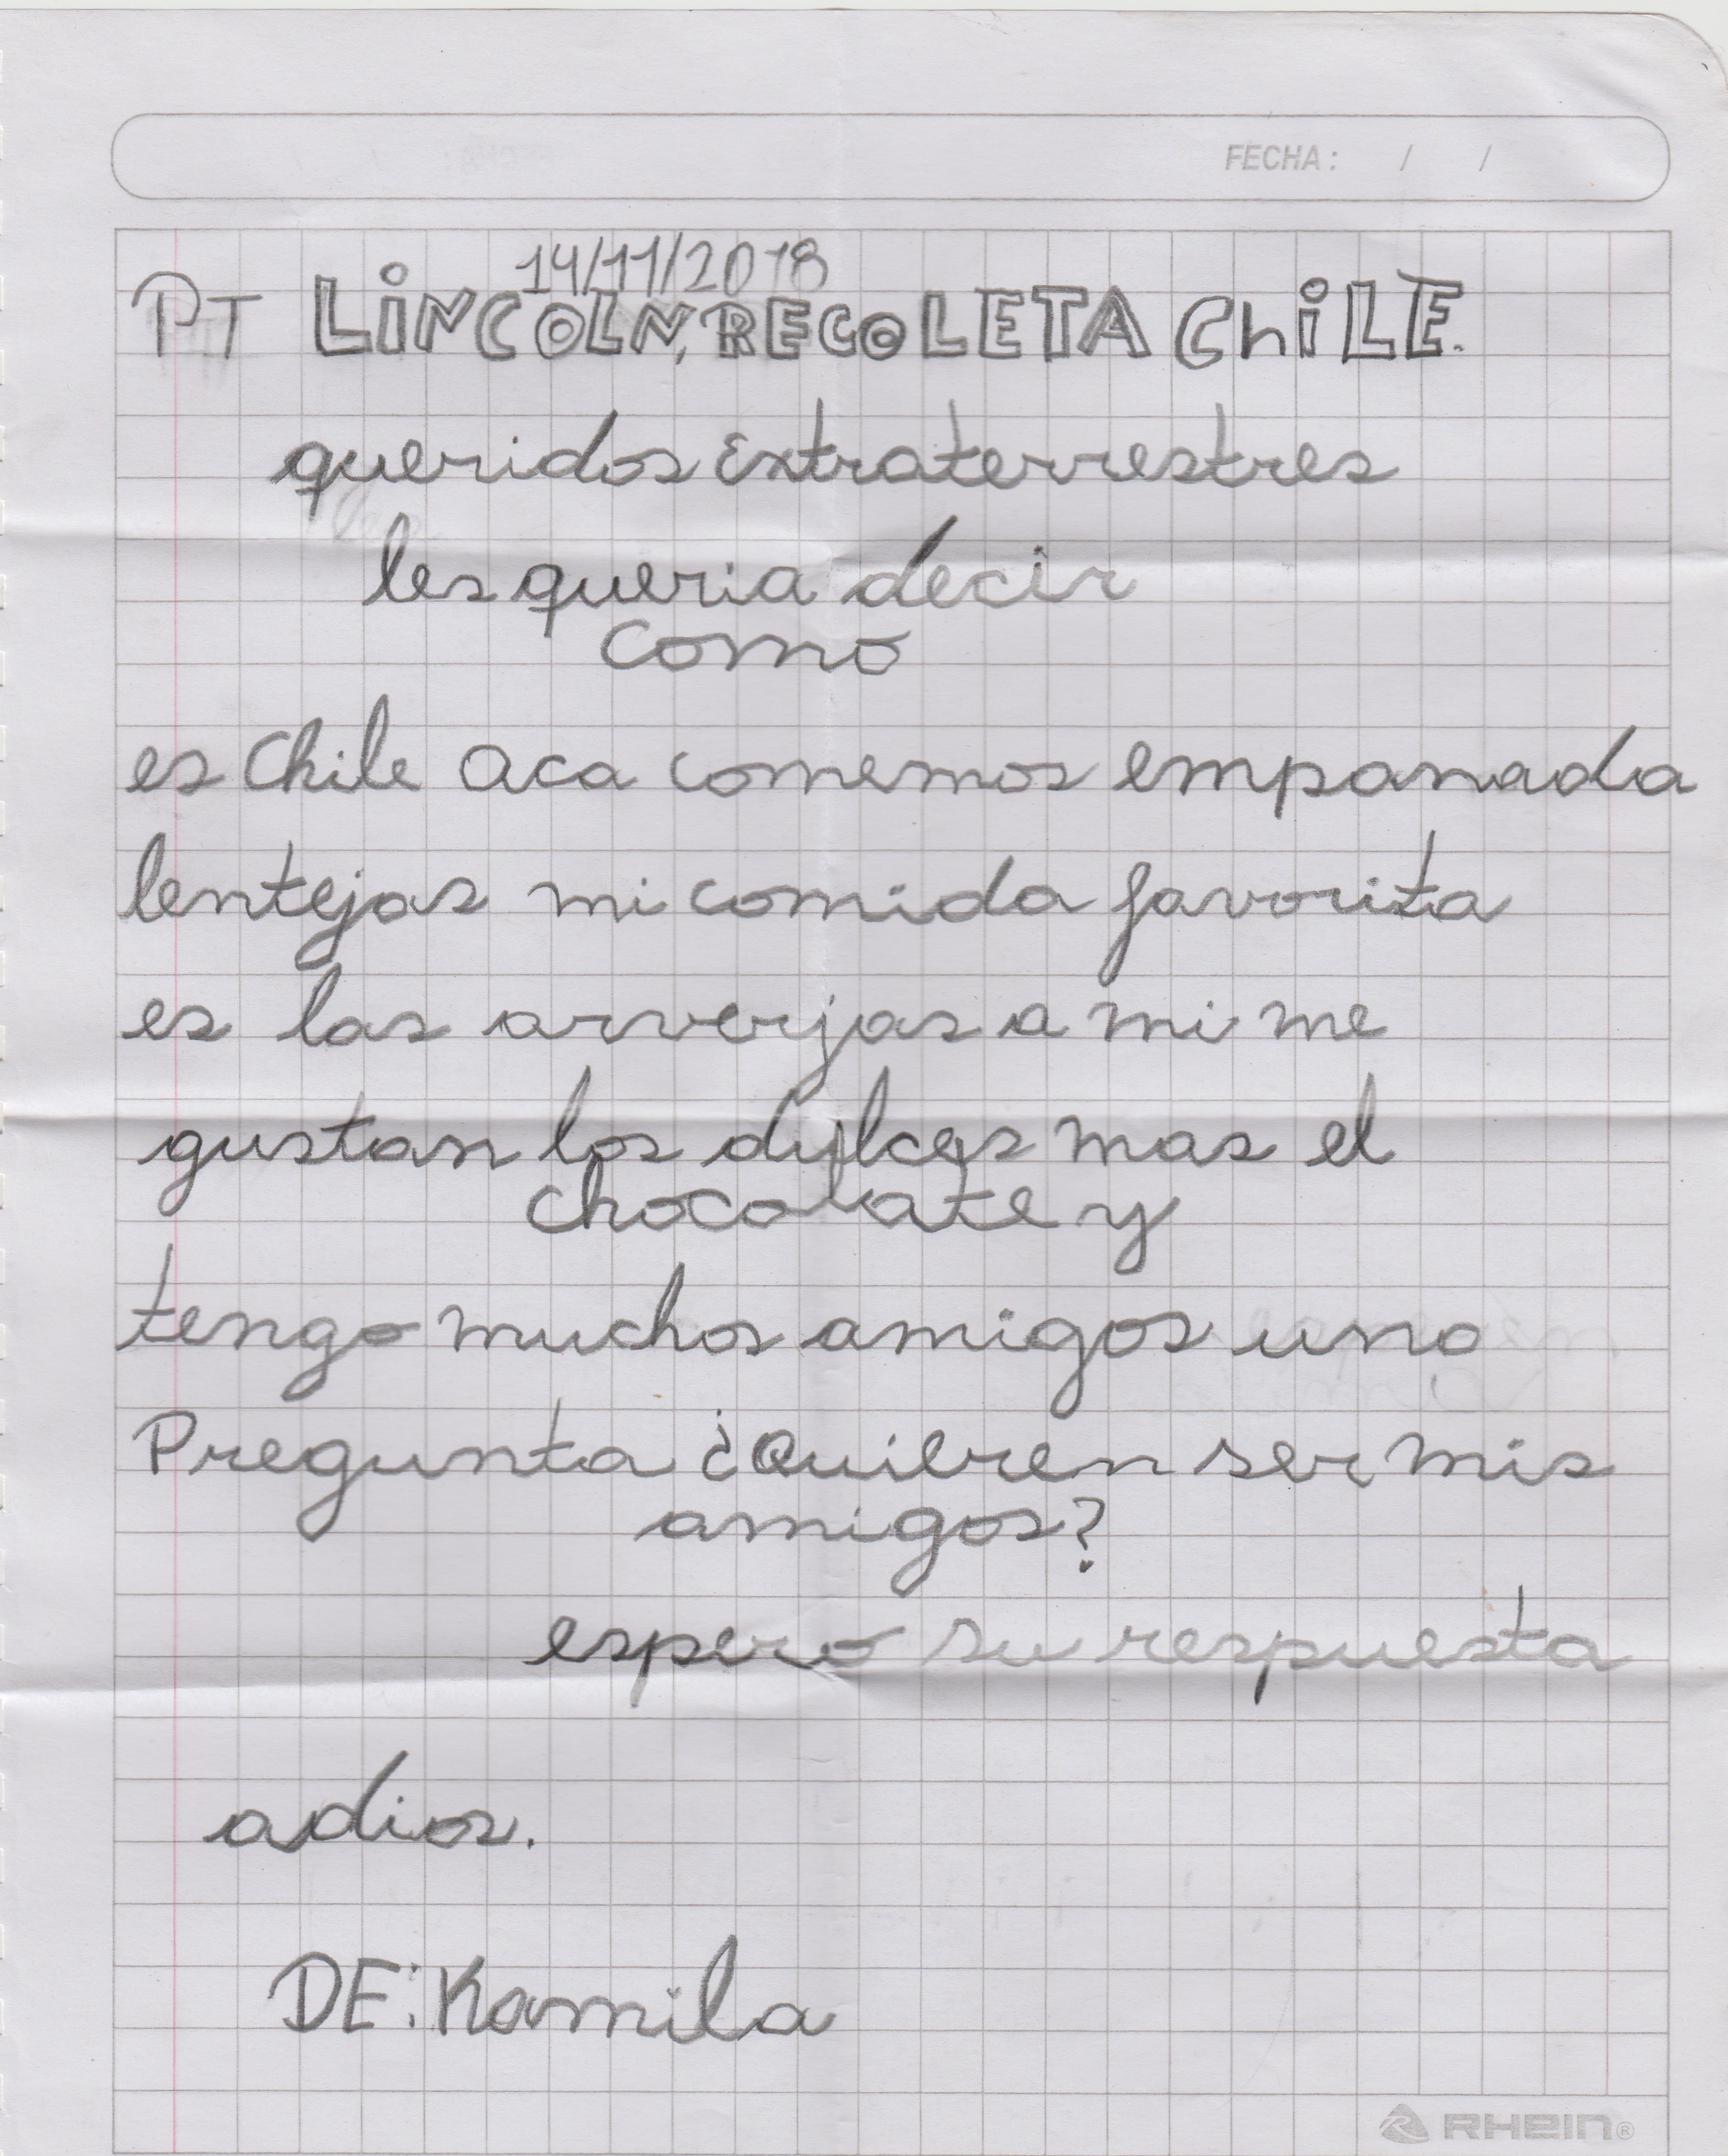 FECHA: / /
14/11/2018
PT LiNCOLN, RECOLETA ChiLE.
queridos Extraterrestres
les queria decir
como
es Chile aca comemos empanada
lentejas mi comida favorita
es las arverjas a mi me
gustan los dulces mas el
chocolate y
tengo muchos amigos una
Pregunta ¿Quieren ser mis
amigos?
espero su respuesta
adios.
DE: Kamila
RHEIN®